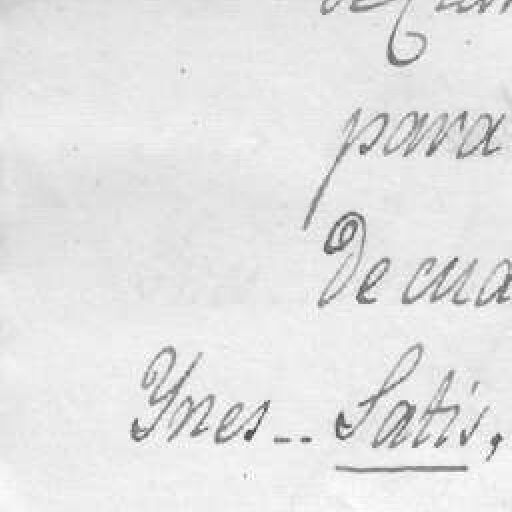 para
De cua
Ynes -- Satis,